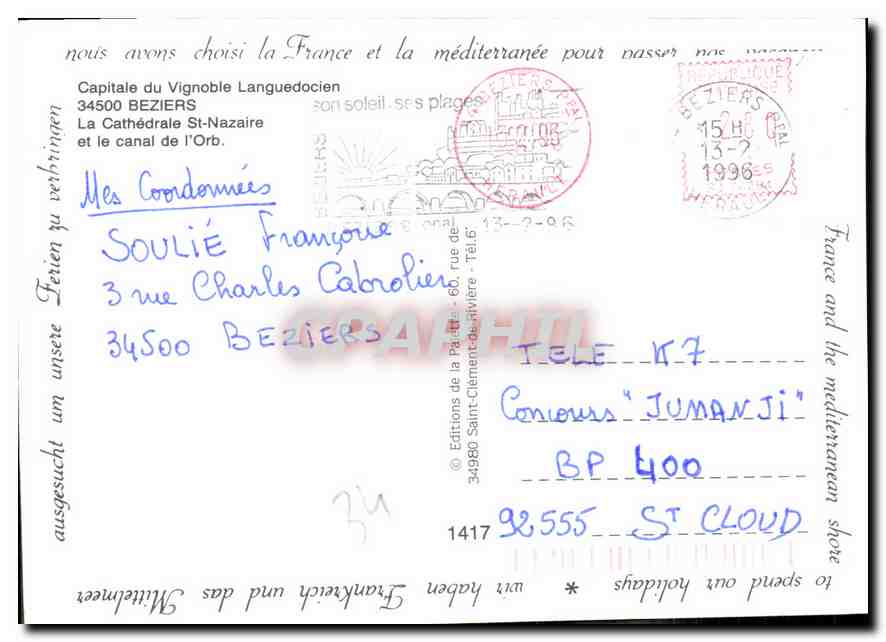 nous avons choisi la France et la méditerranée pour passer nos vacances
Capitale du Vignoble Languedocien
34500 BEZIERS
La Cathédrale St-Nazaire
et le canal de l'Orb.
son soleil, ses plages
BEZIERS
13-2-96
BEZIERS PPAL
HERAULT
REPUBLIQUE
BEZIERS PPAL
15 H
13-2
1996
HERAULT
Mes Coordonnées
SOULIÉ Françoise
3 rue Charles Cabrolier
34500 BEZIERS
SPAPHIL
© Editions de la Palette - 60, rue de
34980 Saint-Clément-de-Rivière - Tél. 6
TELE K7
Concours "JUMANJI"
BP 400
1417 92555 ST CLOUD
34
France and the mediterranean shore
to spend our holidays * wir haben Frankreich und das Mittelmeer
ausgesucht um unsere Ferien zu verbringen